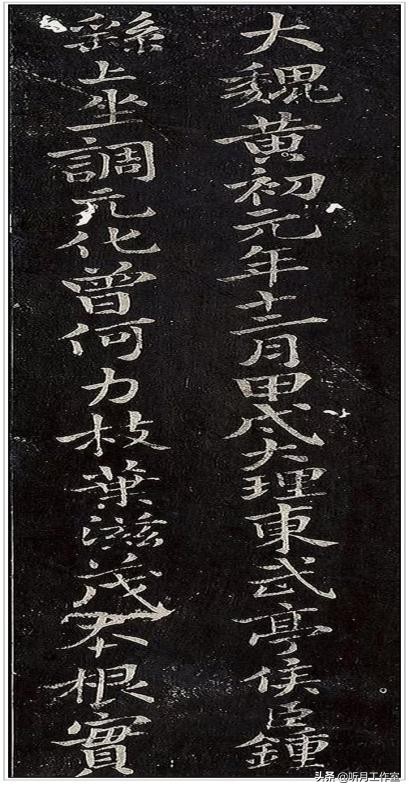 大魏黃初元年十二月甲戌大理東武亭侯臣鍾
繇上坐調元化曾何力枝葉滋茂本根實
头条 @听月工作室